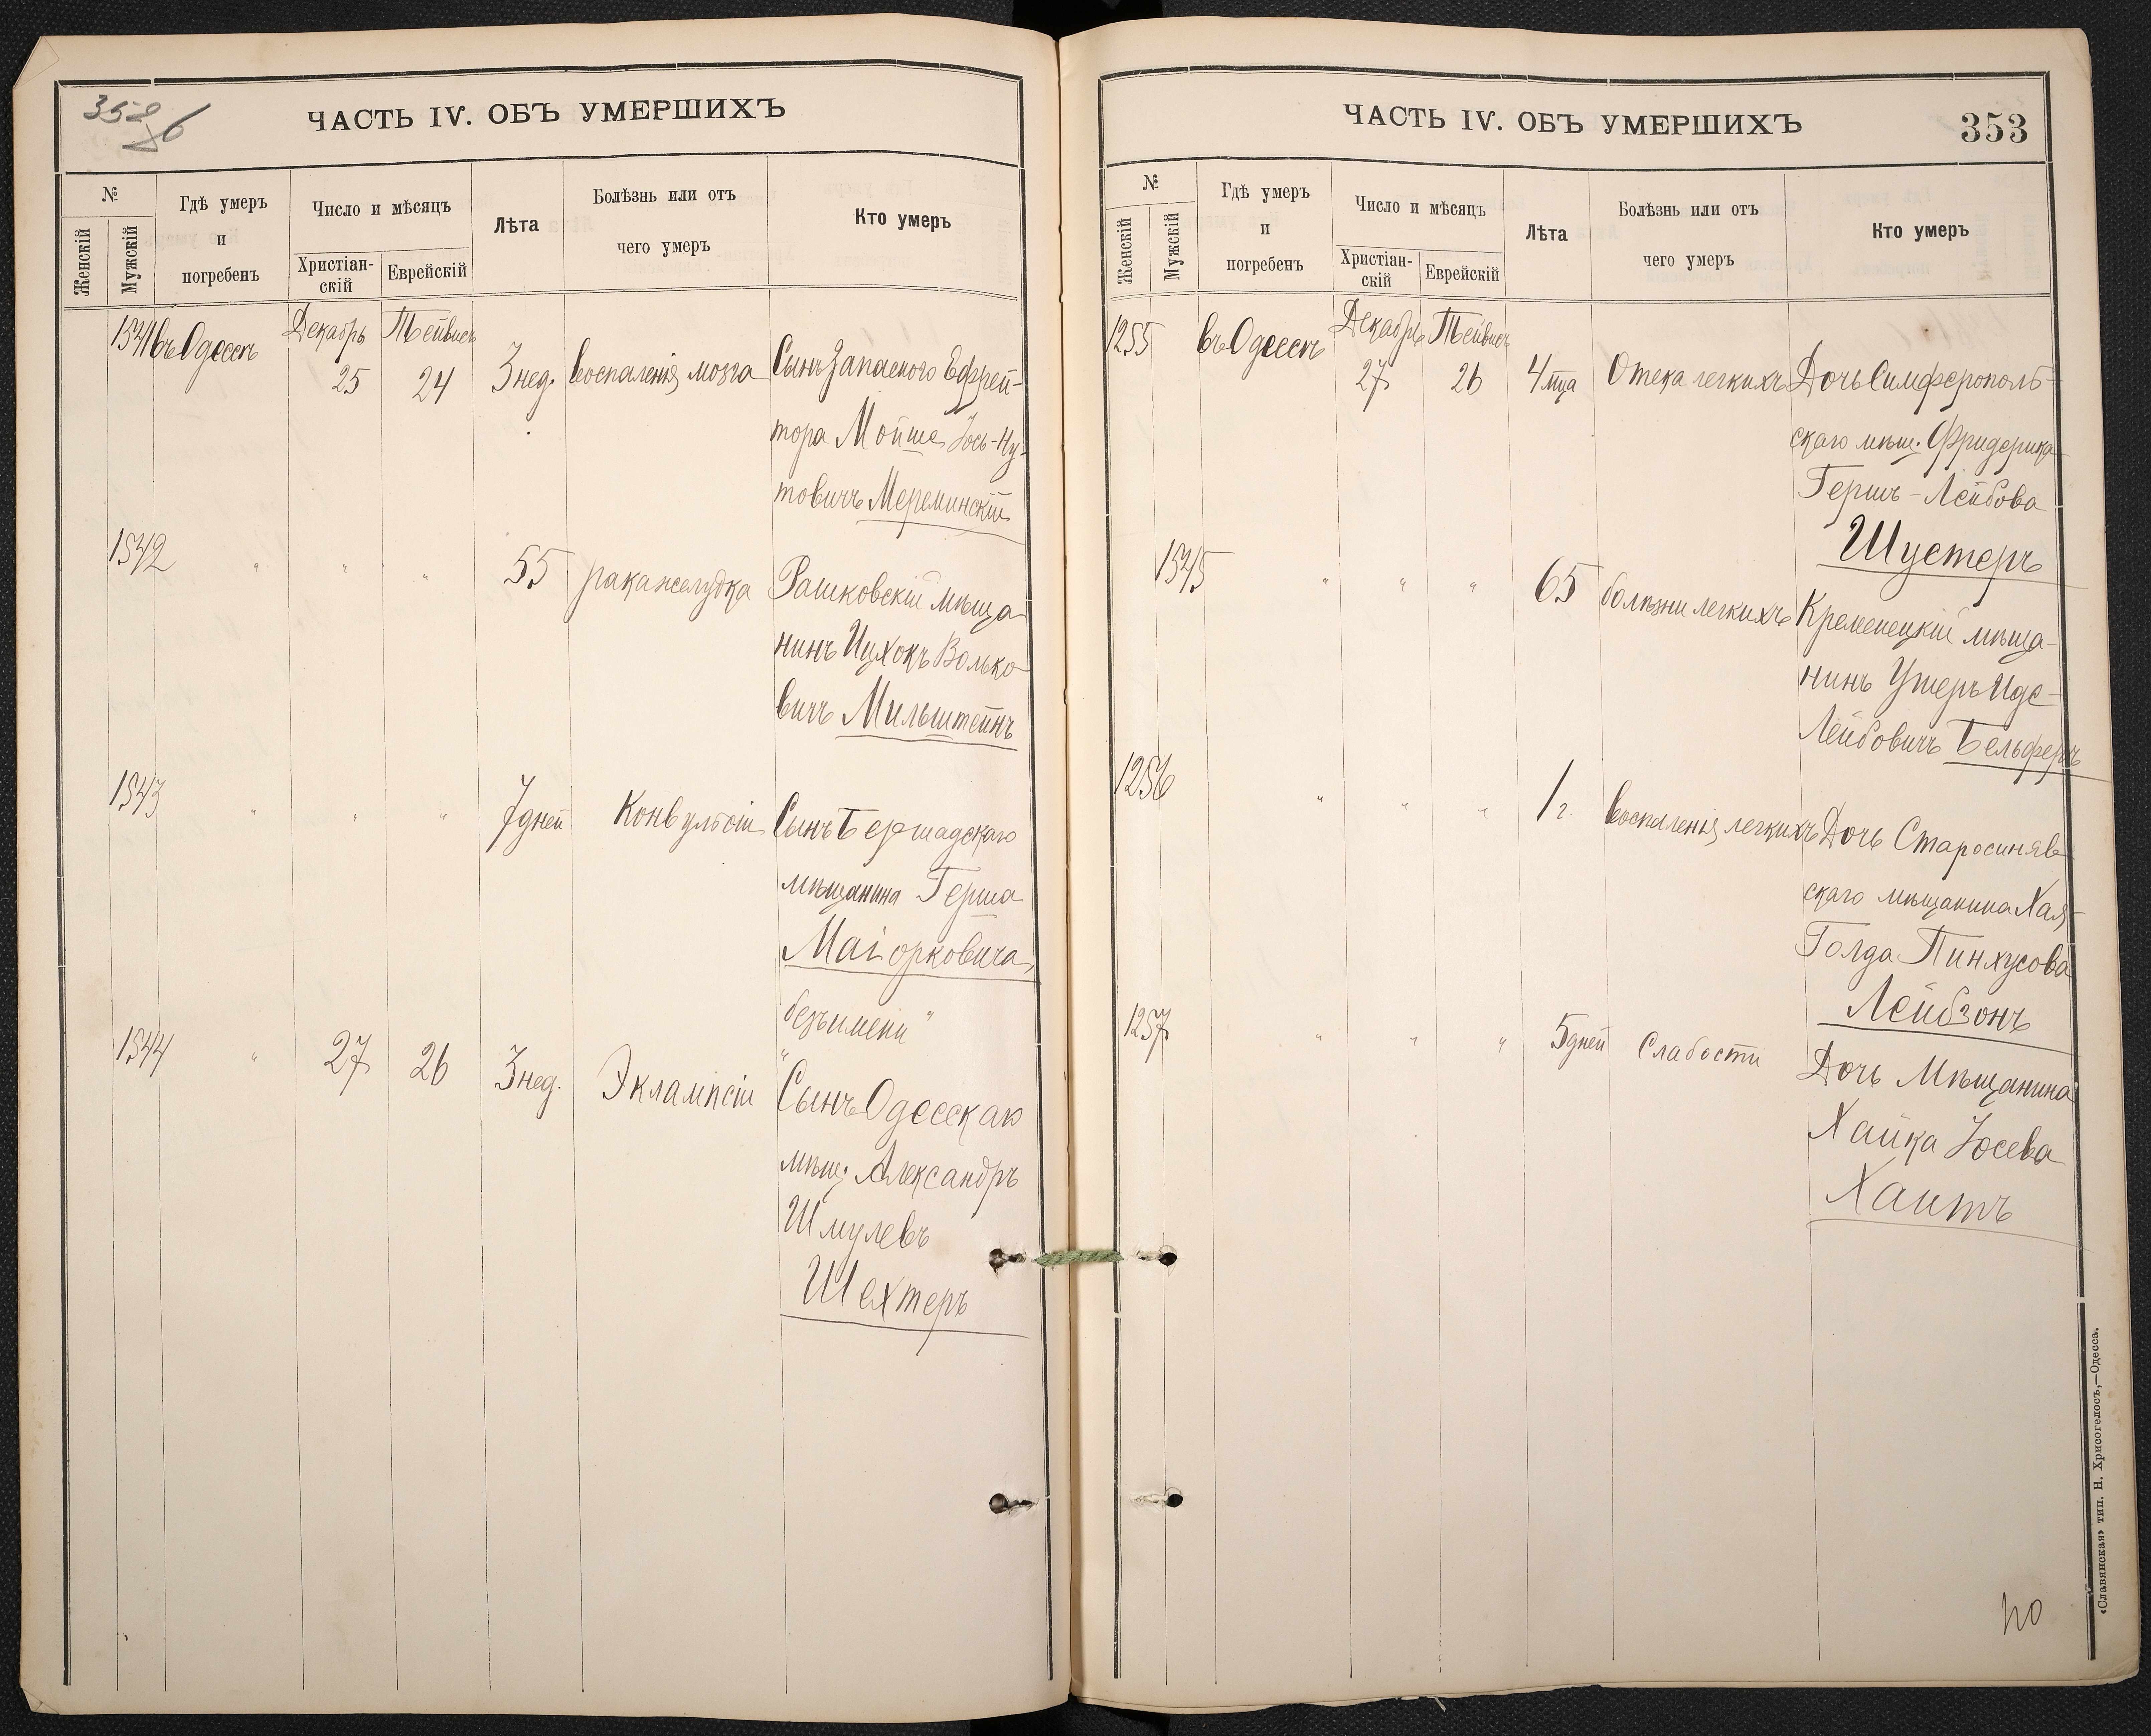 352 об
ЧАСТЬ IV. ОБЪ УМЕРШИХЪ
№
Женскій
Мужскій
Гдѣ умеръ
и
погребенъ
Число и мѣсяцъ
Христіан-
скій
Еврейскій
Лѣта
Болѣзнь или отъ
чего умеръ
Кто умеръ
1541 въ Одессѣ Декабрь Тейвисъ
25 24 3 нед. воспаленія мозга Сынъ Запасного Ефрей-
тора Мойше Іось-Ну-
товичъ Мереминскій
1542 " " " 55 рака желудка Рашковскій мѣща
нинъ Ицхокъ Волько
вичъ Мильштейнъ
1543 " " " 7 дней Конвульсіи Сынъ Бершадскаго
мѣщанина Герша
Маіорковича,
безъ имени "
1544 " 27 26 3 нед. Эклампсіи "Сынъ Одесскаго
мѣщ. Александръ
Шмулевъ
Шехтеръ
ЧАСТЬ IV. ОБЪ УМЕРШИХЪ
353
№
Женскій
Мужскій
Гдѣ умеръ
и
погребенъ
Число и мѣсяцъ
Христіан-
скій
Еврейскій
Лѣта
Болѣзнь или отъ
чего умеръ
Кто умеръ
1255 въ Одессѣ Декабрь Тейвисъ
27 26 4 мца Отека легкихъ Дочь Симферополь-
скаго мѣщ. Фридерика
Гершъ-Лейбова
Шустеръ
1545 " " " 65 болѣзни легкихъ Кременецкій мѣща-
нинъ Ушеръ Иде-
Лейбовичъ Бельферъ
1256 " " " 1 г. воспаленія легкихъ Дочь Старосиняв
скаго мѣщанина Хая-
Голда Пинхусова
Лейбзонъ
1257 " " " 5 дней Слабости Дочь Мѣщанина
Хайка Іосева
Хаитъ
«Славянская» тип. Н. Хрисогелосъ,—Одесса.